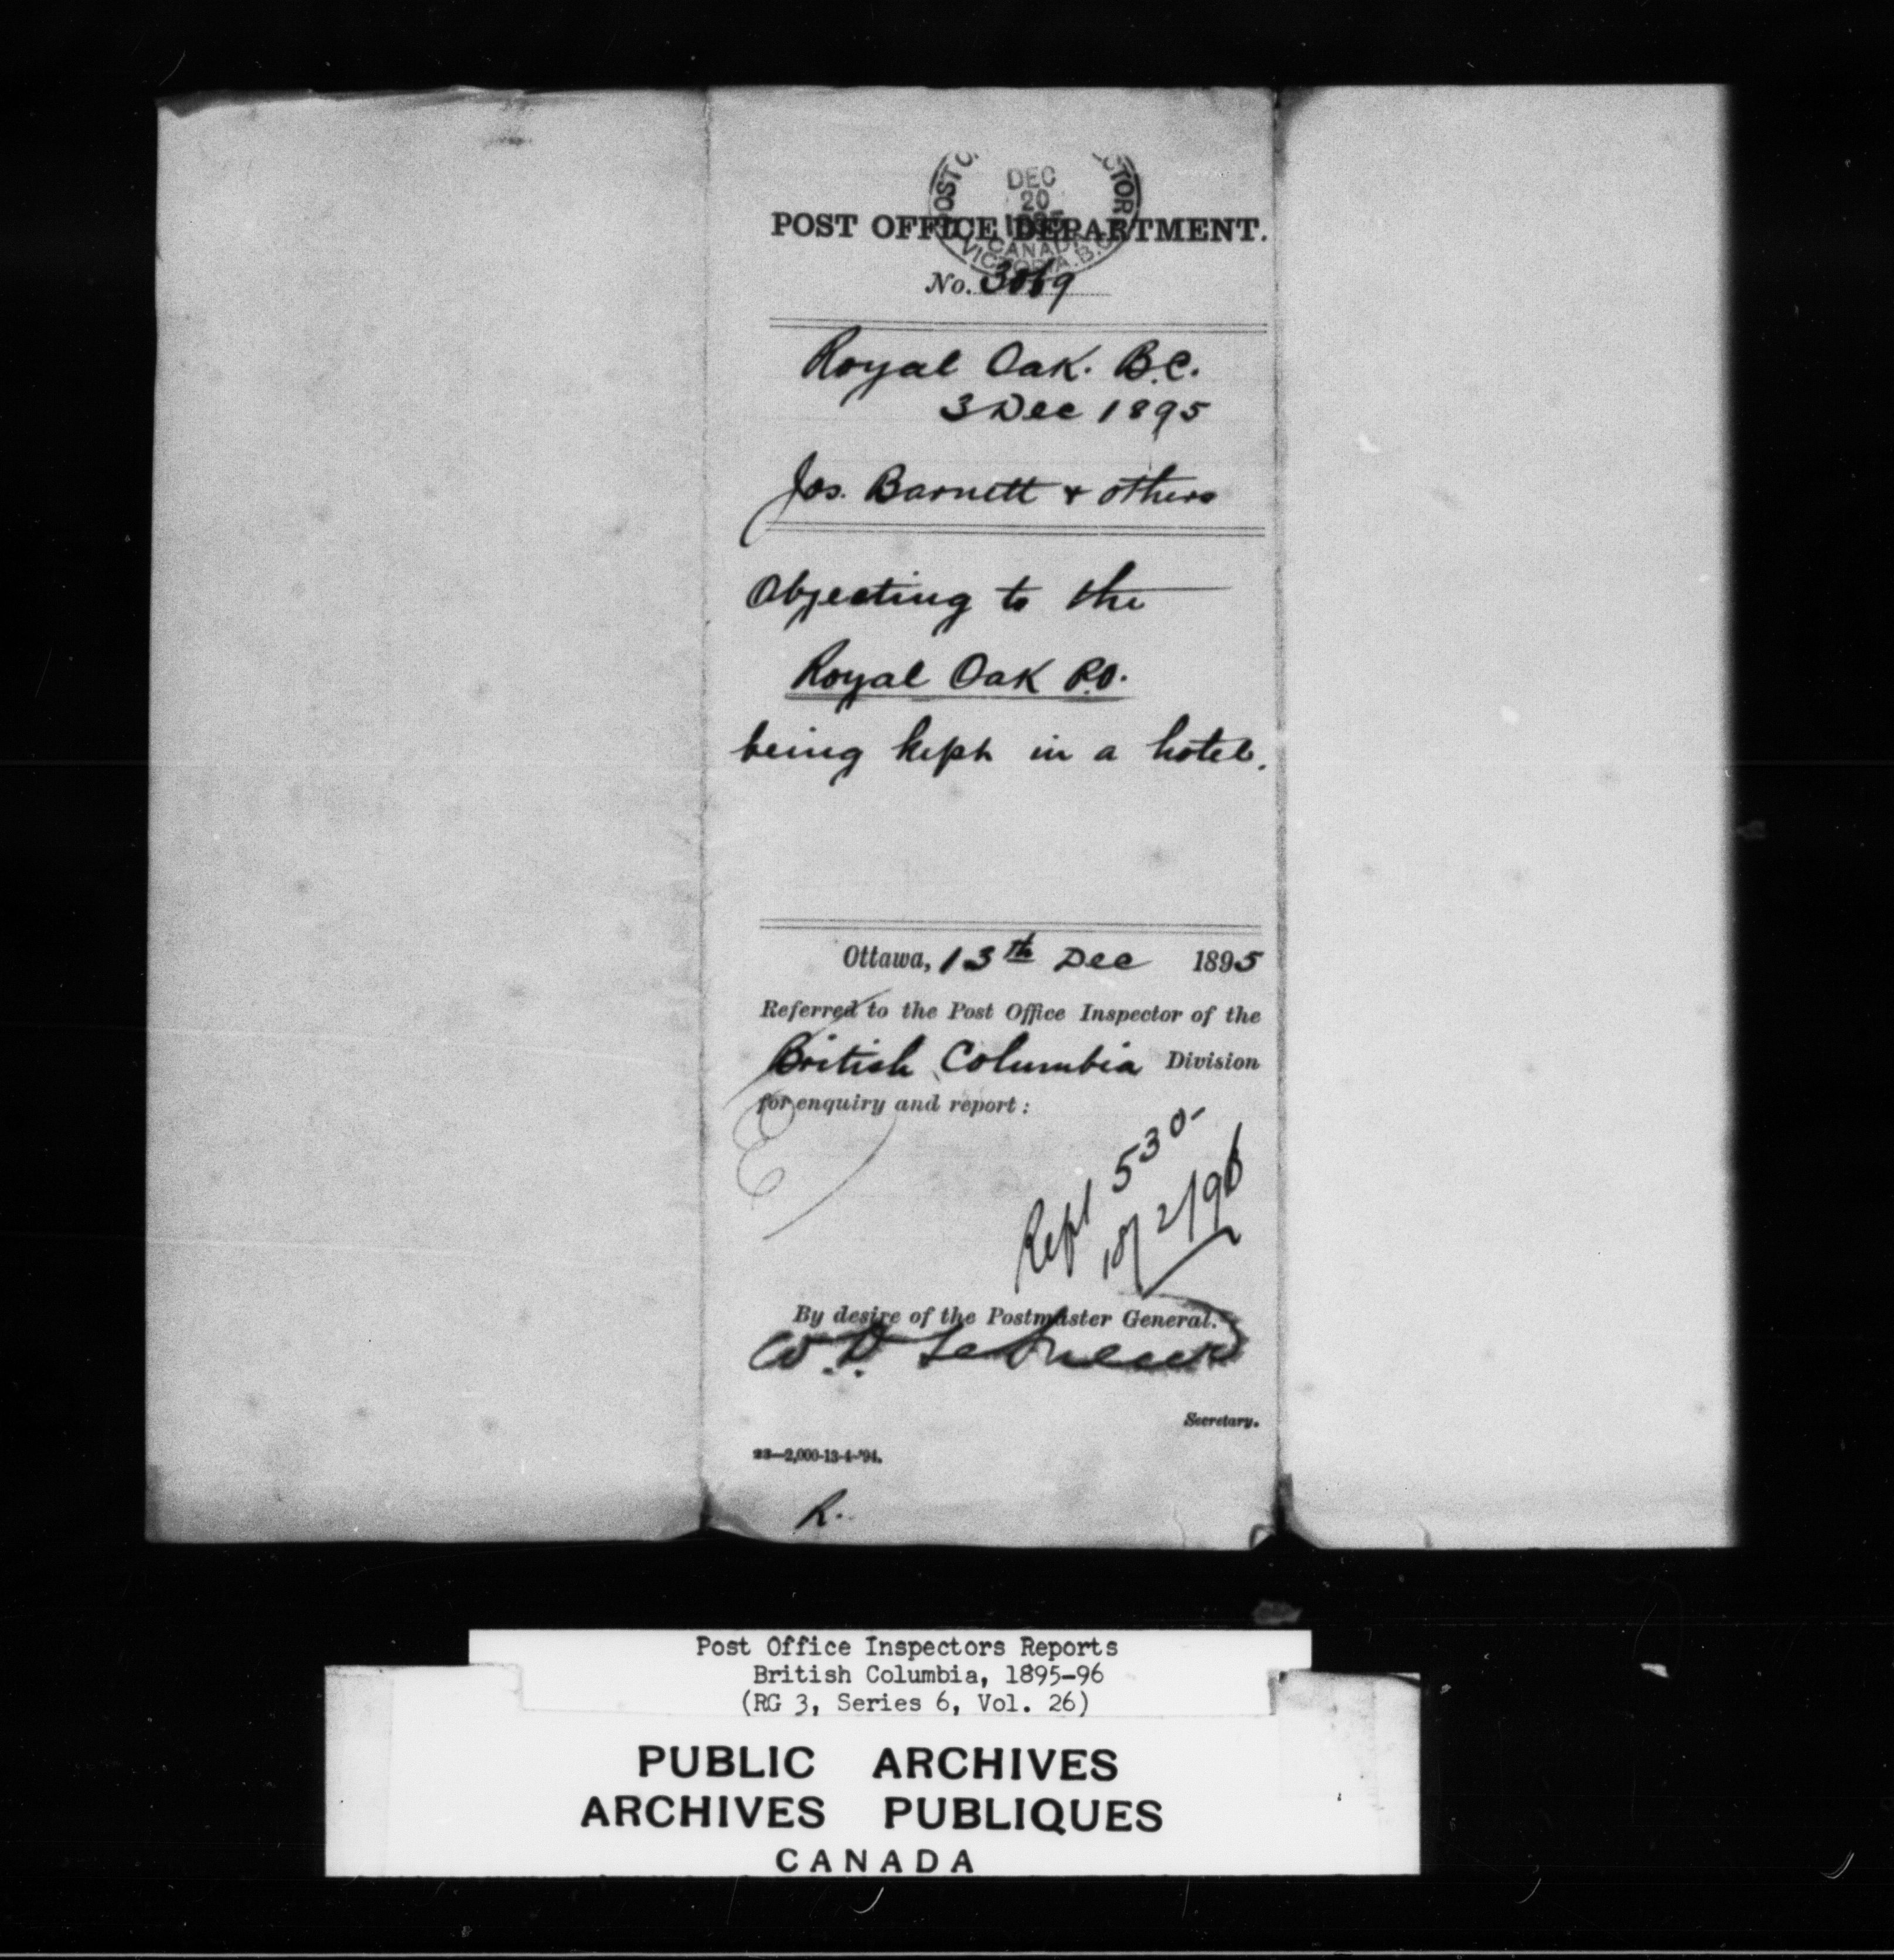 POST O CTOR
DEC
20
CANADA
VICTORIA. B.C.
POST OFFICE DEPARTMENT.
No. 3069
Royal Oak. B.C.
3 Dec 1895
Jos. Barnett & others
Objecting to the
Royal Oak P.O.
being kept in a hotel.
Ottawa, 13th Dec 1895
Referred to the Post Office Inspector of the
British Columbia Division
for enquiry and report:
Rept 530-
18/2/96
By desire of the Postmaster General.
W. D. LeSueur
Secretary.
23—2,000-13-4-'94.
R.
Post Office Inspectors Reports
British Columbia, 1895-96
(RG 3, Series 6, Vol. 26)
PUBLIC ARCHIVES
ARCHIVES PUBLIQUES
CANADA